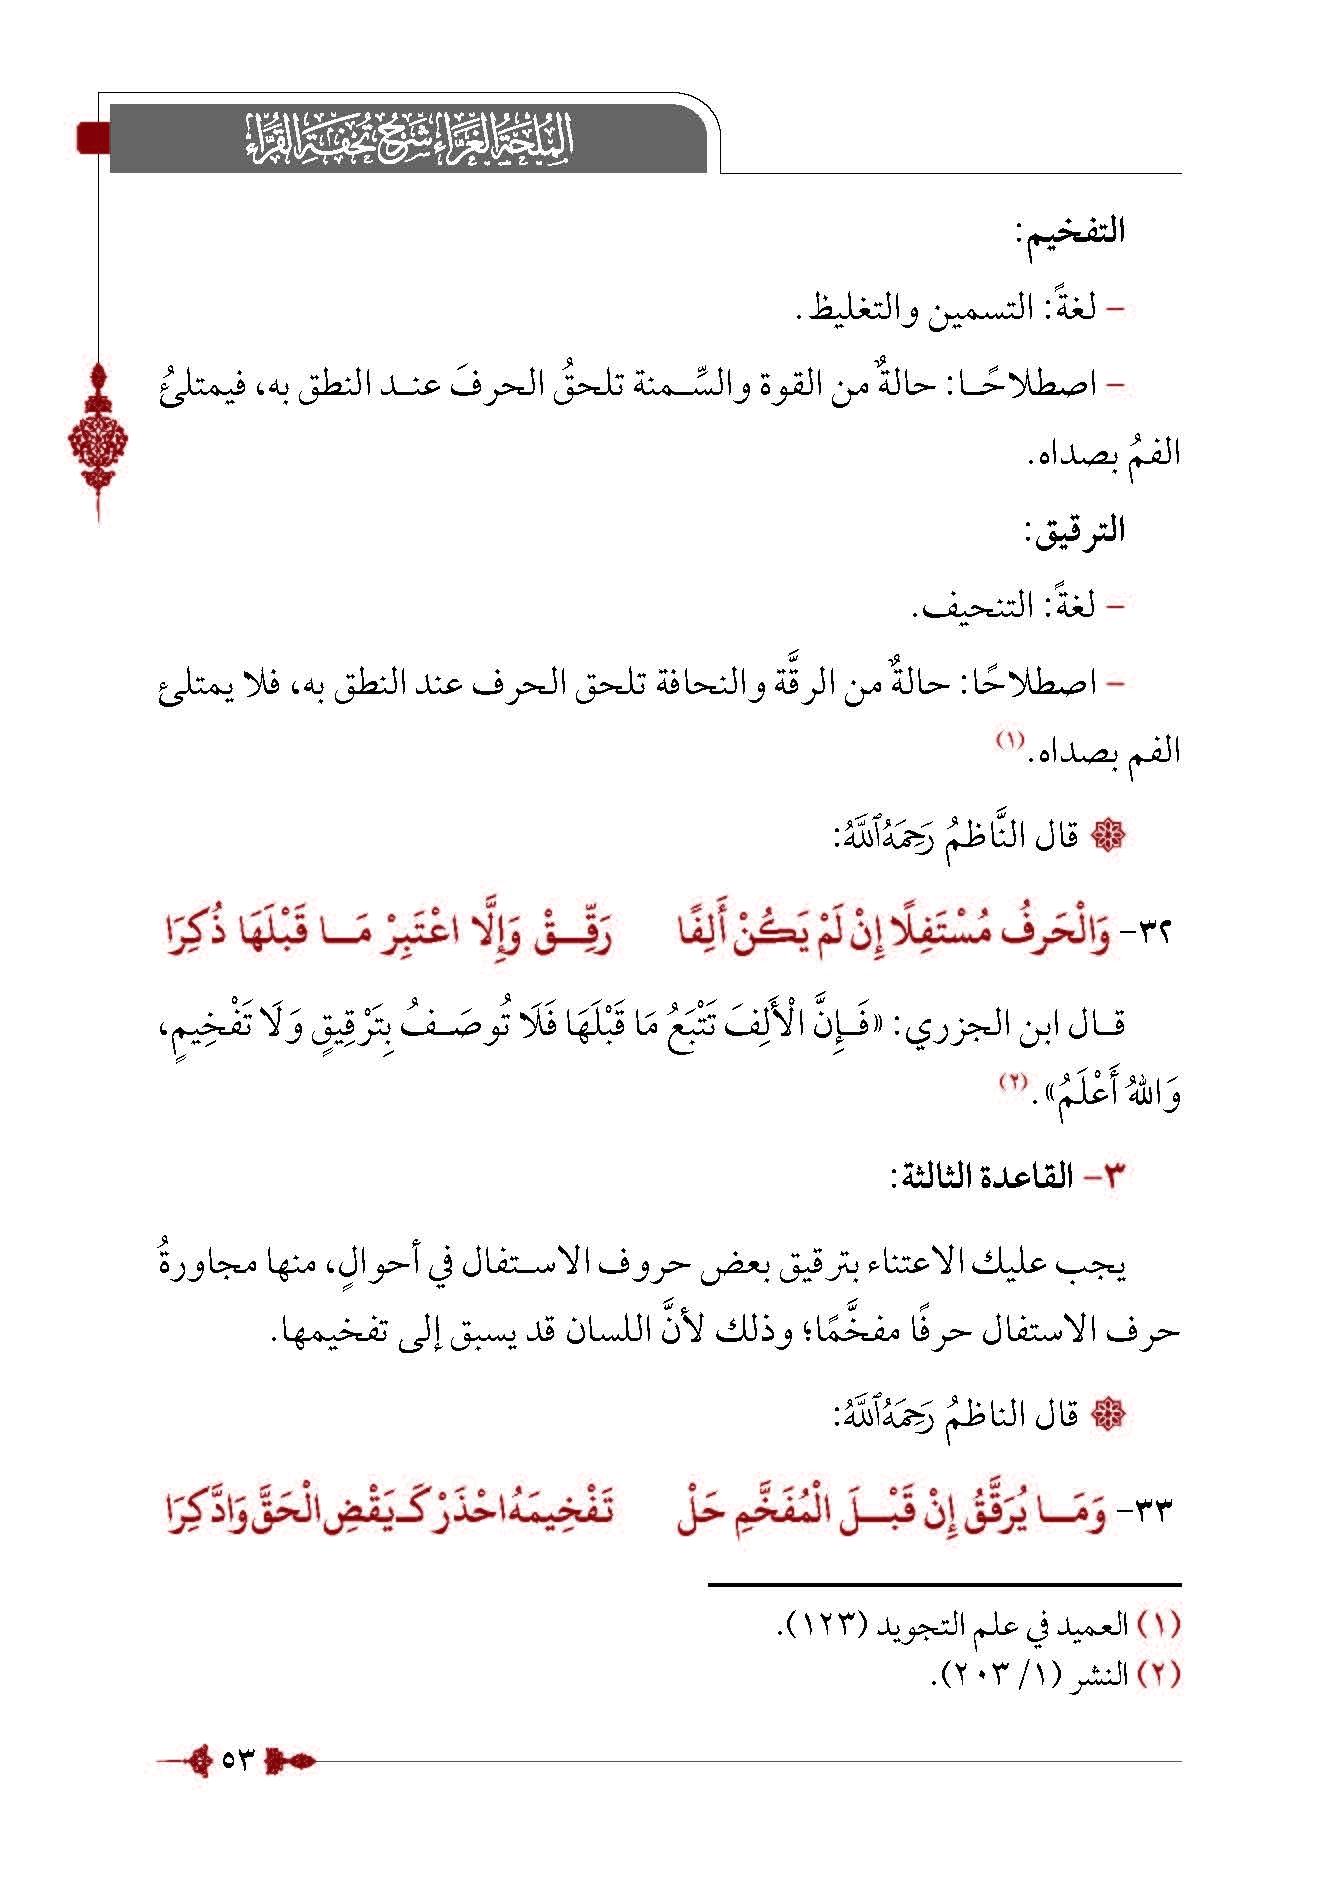 المُلْحَةُ الغَرَّاء شَرْحُ تُحْفَةِ القُرَّاء
التفخيم:
– لغةً: التسمين والتغليظ.
– اصطلاحًا: حالةٌ من القوة والسِّمنة تلحقُ الحرفَ عند النطق به، فيمتلئُ
الفمُ بصداه.
الترقيق:
– لغةً: التنحيف.
– اصطلاحًا: حالةٌ من الرقَّة والنحافة تلحق الحرف عند النطق به، فلا يمتلئ
الفم بصداه.(١)
قال النَّاظمُ رَحِمَهُ ٱللَّهُ:
٣٢- وَالْحَرفُ مُسْتَفِلًا إِنْ لَمْ يَكُنْ أَلِفًا رَقِّقْ وَإِلَّا اعْتَبِرْ مَا قَبْلَهَا ذُكِرَا
قال ابن الجزري: «فَإِنَّ الْأَلِفَ تَتْبَعُ مَا قَبْلَهَا فَلَا تُوصَفُ بِتَرْقِيقٍ وَلَا تَفْخِيمٍ،
وَاللهُ أَعْلَمُ».(٢)
٣- القاعدة الثالثة:
يجب عليك الاعتناء بترقيق بعض حروف الاستفال في أحوالٍ، منها مجاورةُ
حرف الاستفال حرفًا مفخَّمًا؛ وذلك لأنَّ اللسان قد يسبق إلى تفخيمها.
قال الناظمُ رَحِمَهُ ٱللَّهُ:
٣٣- وَمَا يُرَقَّقُ إِنْ قَبْلَ الْمُفَخَّمِ حَلْ تَفْخِيمَهُ احْذَرْ كَـيَقْضِ الْحَقَّ وَادَّكِرَا
(١) العميد في علم التجويد (١٢٣).
(٢) النشر (١/ ٢٠٣).
٥٣